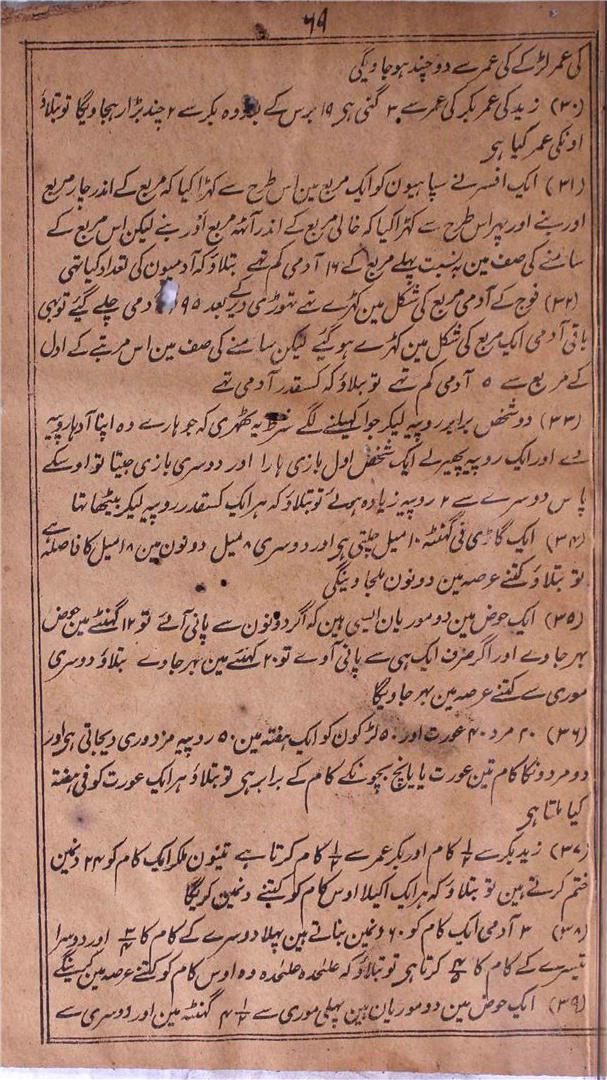 ۶۹
کی عمر لڑکے کی عمر سے دو چند ہو جاویگی
(۳۰) زید کی عمر بکر کی عمر سے ۳ گنی ہی ۱۹ برس کے بعد وہ بکر سے ۲ چند بڑا رہجاویگا تو بتلاؤ
اونکی عمر کیا ہی
(۳۱) ایک افسر نے سپاہیون کو ایک مربع مین اس طرح سے کہڑا کیا کہ مربع کے اندر چار مربع
اور بنے اور پہر اس طرح سے کہڑا کیا کہ خالی مربع کے اندر آٹہہ مربع اور بنے لیکن اس مربع کے
سامنے کی صف مین بہ نسبت پہلے مربع کے ۱۶ آدمی کم تہے بتلاؤ کہ آدمیون کی تعداد کیا تہی
(۳۲) فوج کے آدمی مربع کی شکل مین کہڑے تہے تہوڑی دیر کے بعد ۹۵ آدمی چلے گئے تو بہی
باقی آدمی ایک مربع کی شکل مین کہڑے ہو گئے لیکن سامنے کی صف مین اس مرتبے کے اول
کے مربع سے ۵ آدمی کم تہے تو بتلاؤ کہ کسقدر آدمی تہے
(۳۳) دو شخص برابر روپیہ لیکر جوا کہیلنے لگے شرط یہ ٹھہری کہ جو ہارے وہ اپنا آدہا روپیہ
دے اور ایک روپیہ پھیر لے ایک شخص اول بازی ہارا اور دوسری بازی جیتا تو اوسکے
پاس دوسرے سے ۲ روپیہ زیادہ ہوئے تو بتلاؤ کہ ہر ایک کسقدر روپیہ لیکر بیٹھا تہا
(۳۴) ایک گاڑی فی گہنٹہ ۱۰ میل چلتی ہی اور دوسری ۸ میل دونون مین ۱۸ میل کا فاصلہ ہے
تو بتلاؤ کتنے عرصہ مین دونون ملجاوینگی
(۳۵) ایک حوض مین دو موریان ایسی ہین کہ اگر دونون سے پانی آئے تو ۱۲ گہنٹے مین حوض
بہر جاوے اور اگر صرف ایک ہی سے پانی آوے تو ۲۰ گہنٹے مین بہر جاوے بتلاؤ دوسری
موری سے کتنے عرصہ مین بہر جاویگا
(۳۶) ۲۰ مرد ۴۰ عورت اور ۵۰ لڑکون کو ایک ہفتہ مین ۵۰ روپیہ مزدوری دیجاتی ہی اور
دو مردونکا کام تین عورت یا پانچ بچونکے کام کے برابر ہی تو بتلاؤ ہر ایک عورت کو فی ہفتہ
کیا ملتا ہی
(۳۷) زید بکر سے کام اور بکر عمر سے کام کرتا ہے تینون ملکر ایک کام کو ۲۴ دنمین
ختم کرتے ہین تو بتلاؤ کہ ہر ایک اکیلا اوس کام کو کتنے دنمین کریگا
(۳۸) ۳ آدمی ایک کام کو ۶۰ دنمین بناتے ہین پہلا دوسرے کے کام کا ۳/۴ اور دوسرا
تیسرے کے کام کا کرتا ہی تو بتلاؤ کہ علیحدہ علیحدہ وہ اوس کام کو کتنے عرصہ مین کرینگے
(۳۹) ایک حوض مین دو موریان ہین پہلی موری سے گہنٹہ مین اور دوسری سے